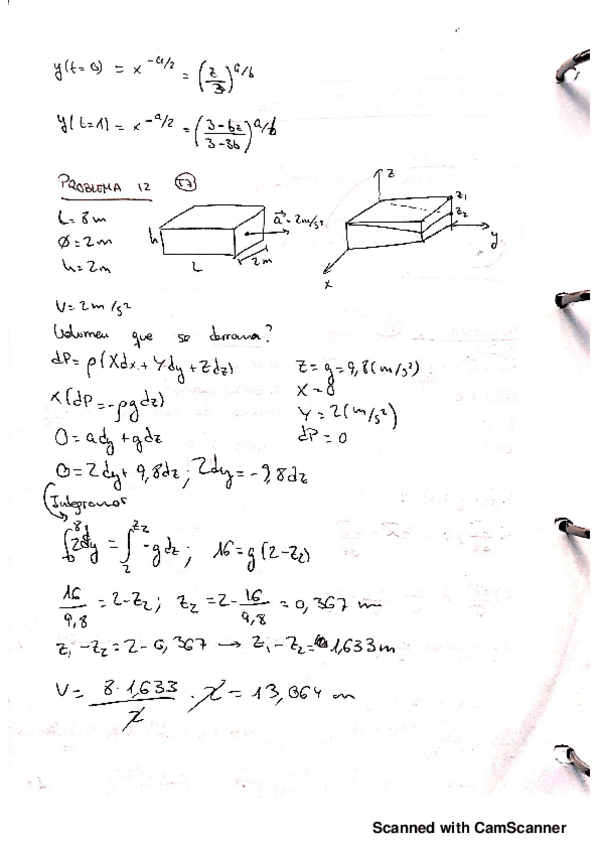 y(t=0) = x^-a/2 = (z/3)^a/b
y(t=1) = x^-a/2 = (3-6z/3-3b)^a/b
PROBLEMA 12 T7
L=8m
Ø=2m
h=2m
h
L
2m
a⃗=2m/s²
z
z₁
z₂
y
x
V=2m/s²
Volumen que se derrama?
dP=ρ(Xdx+Ydy+Zdz)
X(dP=-ρgdz)
0=ady+gdz
0=2dy+9,8dz; 2dy=-9,8dz
Z=g=9,8(m/s²)
X=0
Y=2(m/s²)
dP=0
Integramos
∫₀⁸2dy=∫₂^z₂-gdz; 16=g(2-z₂)
16/9,8=2-z₂; z₂=2-16/9,8=0,367 m
z₁-z₂=2-0,367 → z₁-z₂=1,633m
V=8·1,633/2·2=13,064 m
Scanned with CamScanner